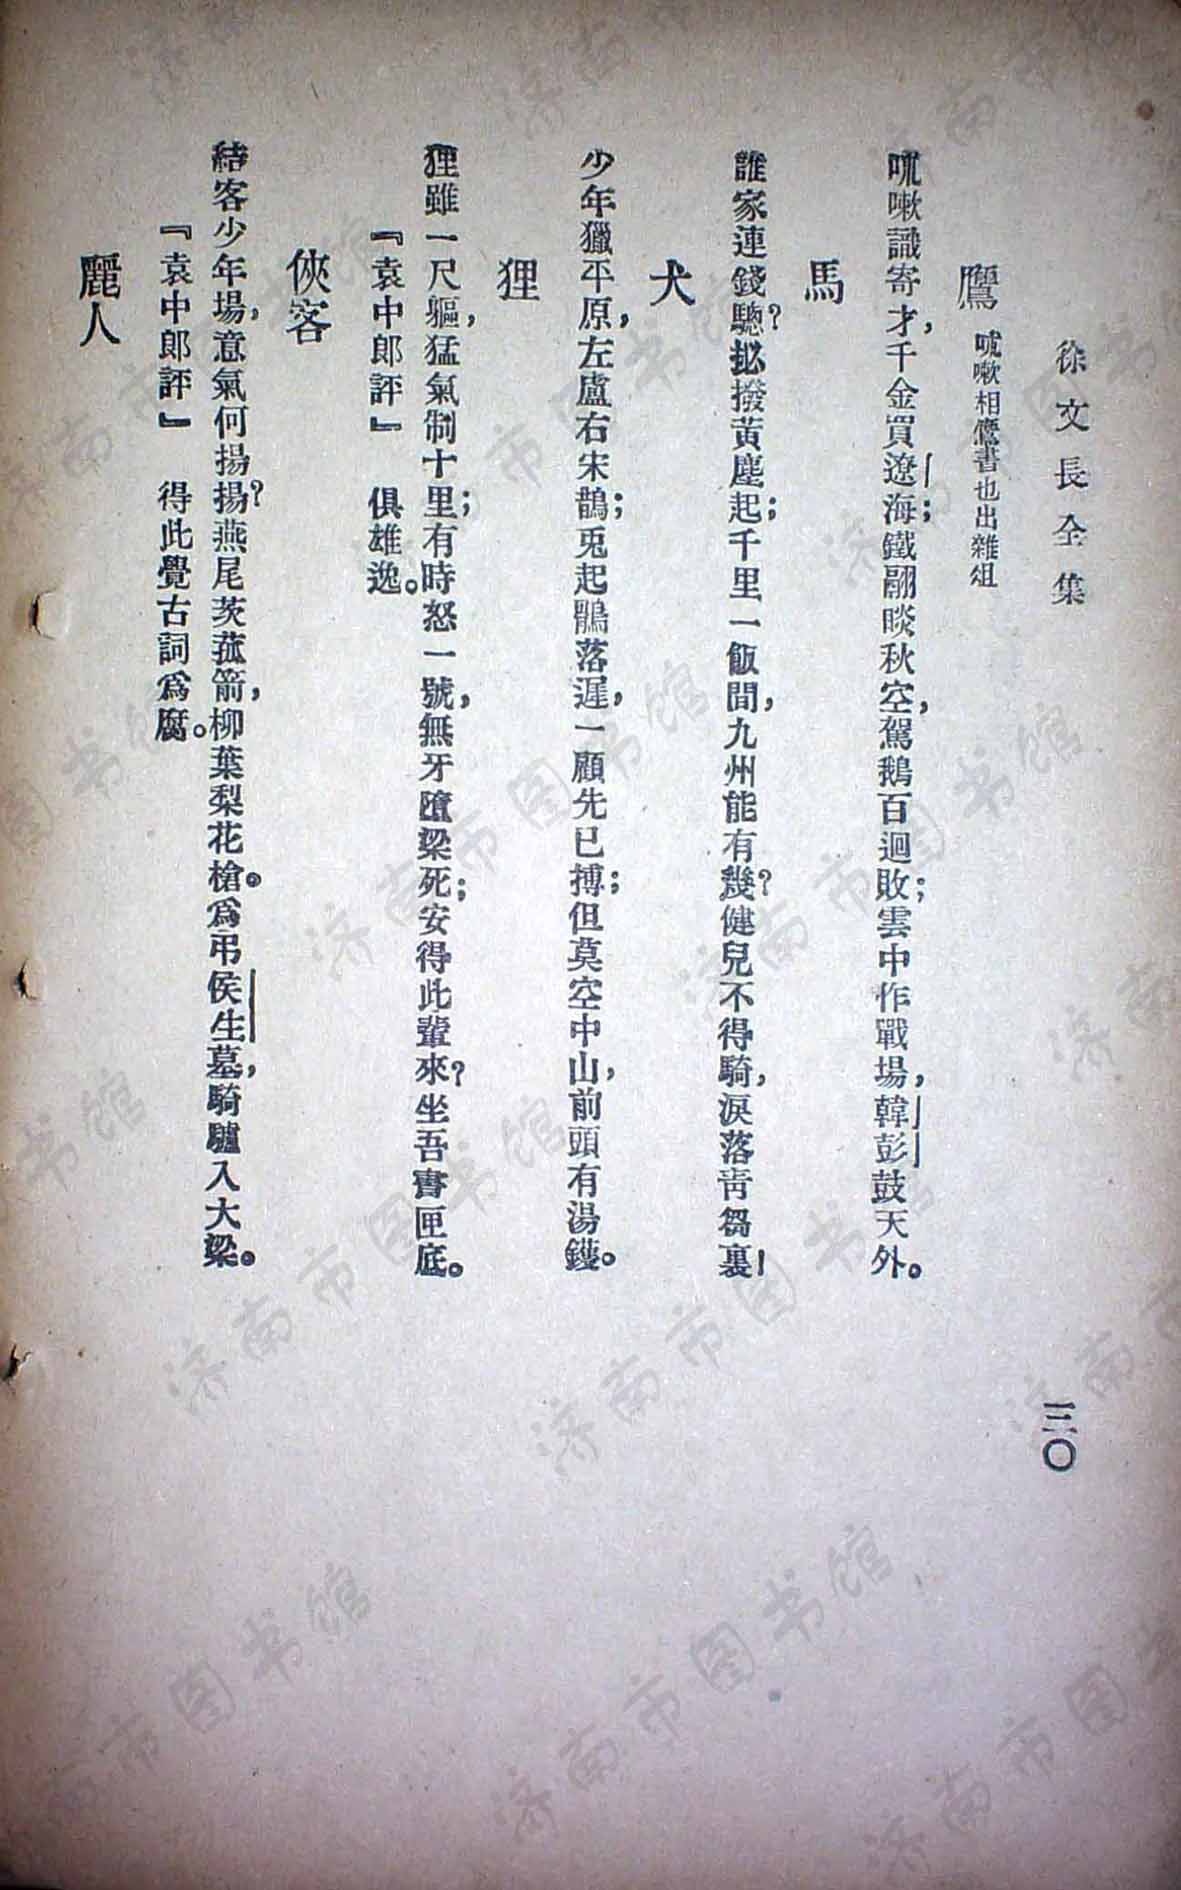 徐文長全集
三〇
鷹 吮嗽相鷹書也出雜俎
吮嗽識寄才，千金買遼海；鐵翮睒秋空，駕鵝百迴敗；雲中作戰場，韓彭鼓天外。
馬
誰家連錢驄？㧙撥黃塵起；千里一飯間，九州能有幾？健兒不得騎，淚落靑芻裏！
犬
少年獵平原，左盧右宋鵲；兎起鶻落遲，一顧先已搏；但莫空中山，前頭有湯鑊。
狸
狸雖一尺軀，猛氣制十里；有時怒一號，無牙墮梁死；安得此輩來？坐吾書匣底。
『袁中郎評』 俱雄逸。
俠客
結客少年場，意氣何揚揚？燕尾茨菰箭，柳葉梨花槍。爲弔侯生墓，騎驢入大梁。
『袁中郎評』 得此覺古詞爲腐。
麗人
济南市图书馆